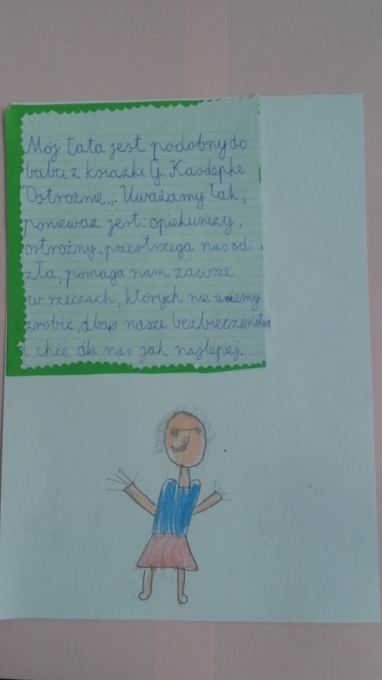 Mój tata jest podobny do
babci z książki G. Kasdepke
"Ostrożnie". Uważamy tak,
ponieważ jest: opiekuńczy,
ostrożny, przestrzega nas od
zła, pomaga nam zawsze
w rzeczach, których nie umiemy
zrobić, dba o nasze bezpieczeństwo
i chce dla nas jak najlepiej.